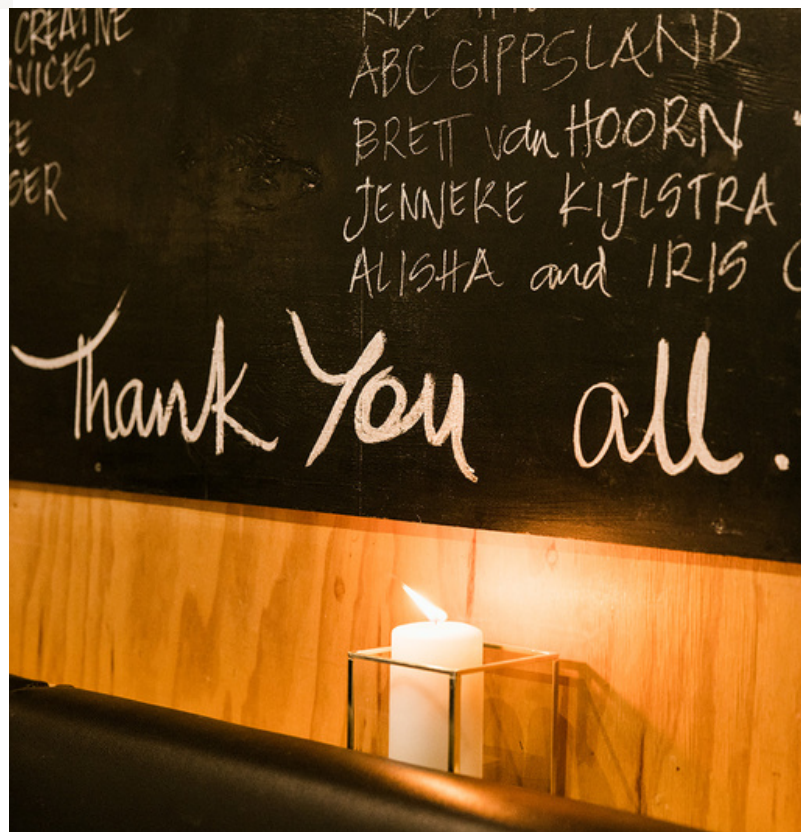 CREATIVE
ABC GIPPSLAND
BRETT van HOORN
JENNEKE KIJLSTRA
ALISHA and IRIS
Thank You all.